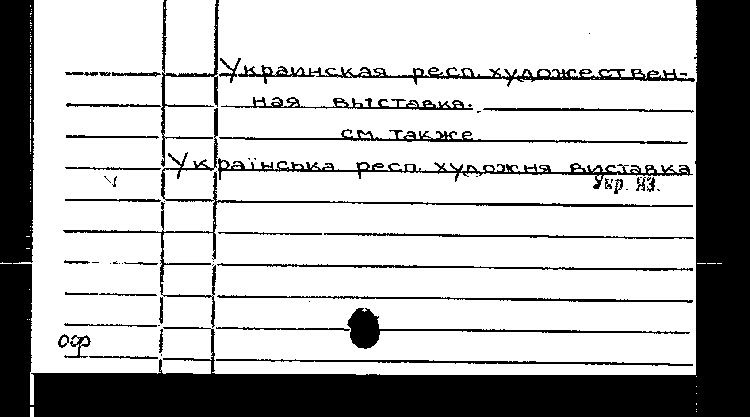 Украинская респ. художествен-
ная выставка.
см. также
Українська респ. художня виставка
Укр. яз.
оф